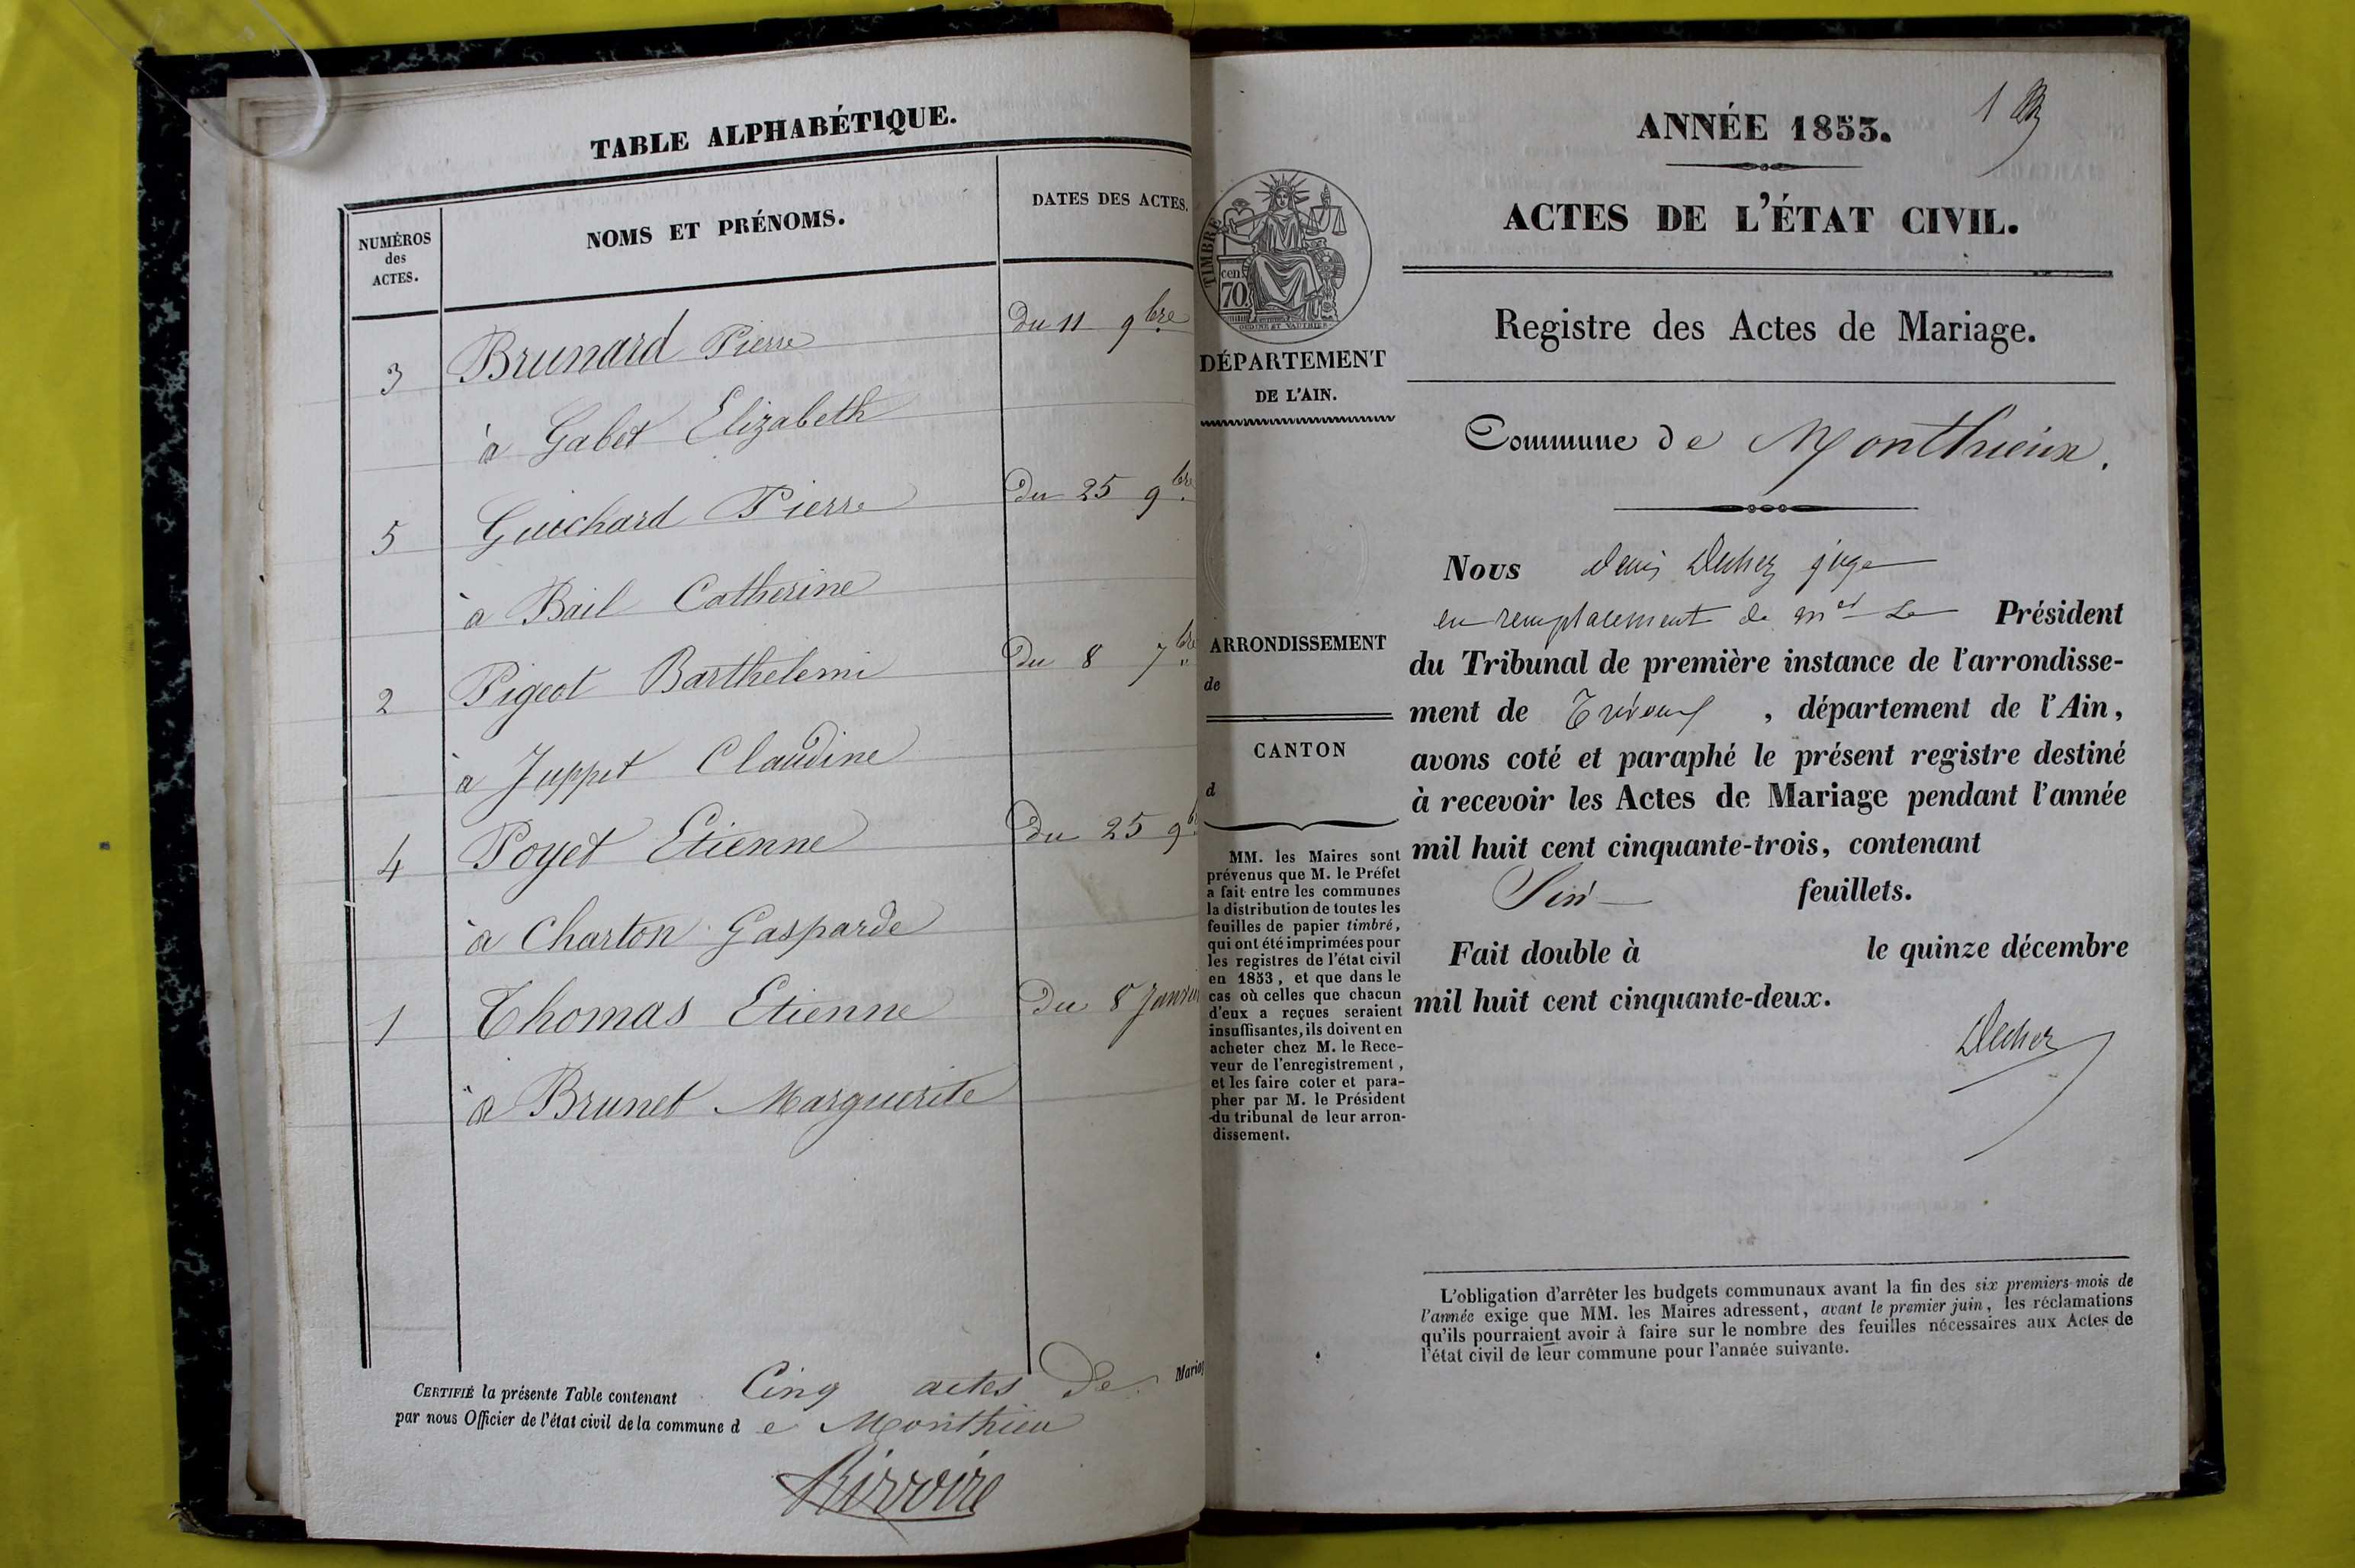 TABLE ALPHABÉTIQUE.
NUMÉROS
des
ACTES.
NOMS ET PRÉNOMS.
DATES DES ACTES.
3 Brunard Pierre Du 11 9bre
à Gabet Elizabeth
5 Guichard Pierre Du 25 9bre
à Bail Catherine
2 Pigeot Barthelemi Du 8 7bre
à Juppet Claudine
4 Poyet Etienne Du 25 9b
à Charton Gasparde
1 Thomas Etienne Du 8 Janvier
à Brunet Marguerite
CERTIFIÉ la présente Table contenant Cinq actes de Mariag
par nous Officier de l'état civil de la commune d e Monthieu
1
ANNÉE 1853.
ACTES DE L'ÉTAT CIVIL.
Registre des Actes de Mariage.
TIMBRE
cen.
70
DÉPARTEMENT
DE L'AIN.
ARRONDISSEMENT
de
CANTON
d
MM. les Maires sont
prévenus que M. le Préfet
a fait entre les communes
la distribution de toutes les
feuilles de papier timbré,
qui ont été imprimées pour
les registres de l'état civil
en 1853, et que dans le
cas où celles que chacun
d'eux a reçues seraient
insuffisantes, ils doivent en
acheter chez M. le Rece-
veur de l'enregistrement,
et les faire coter et para-
pher par M. le Président
du tribunal de leur arron-
dissement.
Commune de Monthieux.
Nous Denis Decher juge
en remplacement de Mr Le Président
du Tribunal de première instance de l'arrondisse-
ment de Trévoux, département de l'Ain,
avons coté et paraphé le présent registre destiné
à recevoir les Actes de Mariage pendant l'année
mil huit cent cinquante-trois, contenant
Six feuillets.
Fait double à le quinze décembre
mil huit cent cinquante-deux.
Decher
L'obligation d'arrêter les budgets communaux avant la fin des six premiers mois de
l'année exige que MM. les Maires adressent, avant le premier juin, les réclamations
qu'ils pourraient avoir à faire sur le nombre des feuilles nécessaires aux Actes de
l'état civil de leur commune pour l'année suivante.